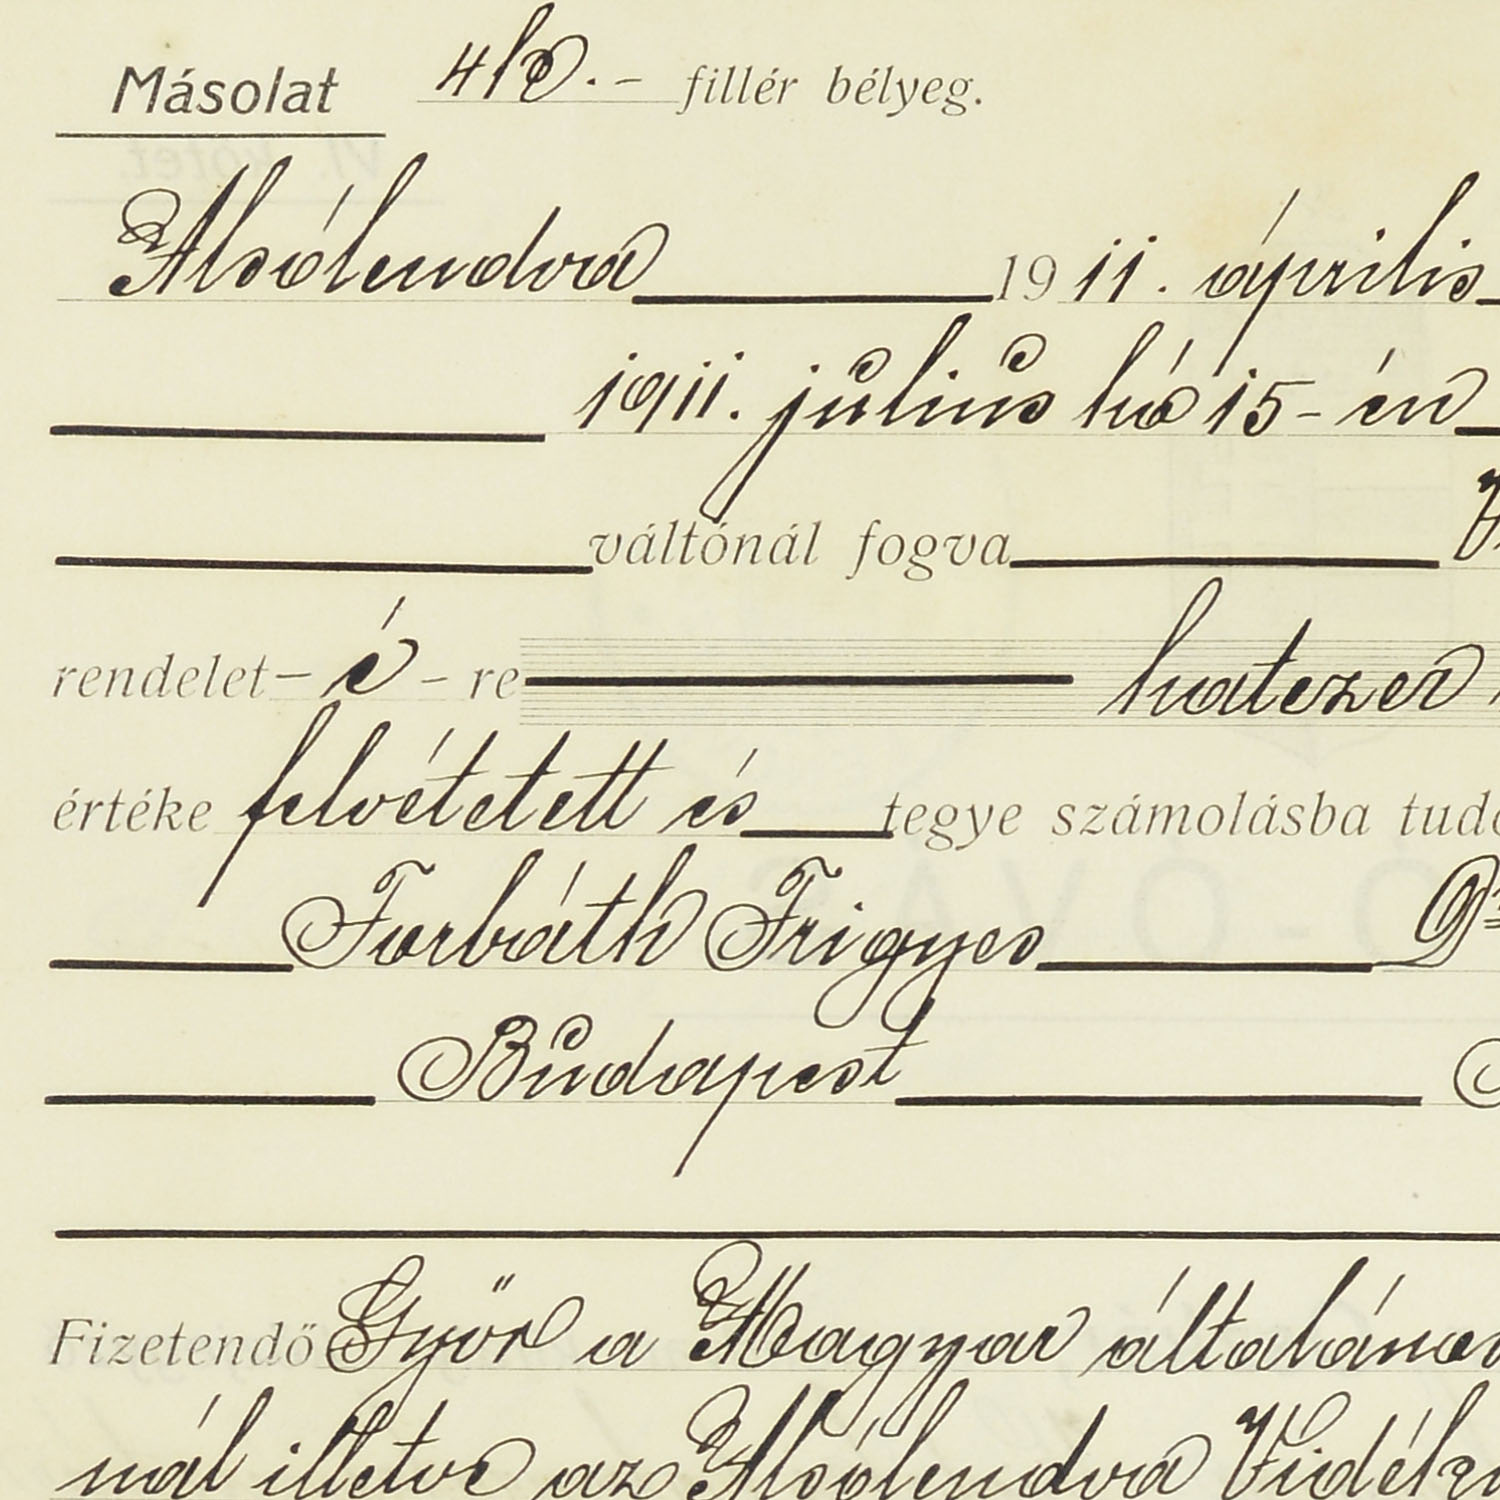 Másolat 4/10.- fillér bélyeg.
Alsólendva 1911. április
1911. július hó 15-én
váltónál fogva
rendelet-é-re hatezer
értéke felvétetett és tegye számolásba
Forbáth Frigyes
Budapest
Fizetendő Győr a Magyar általános
nál illetve az Alsólendva Vidéki